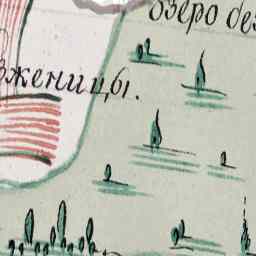 озеро без
женицы.